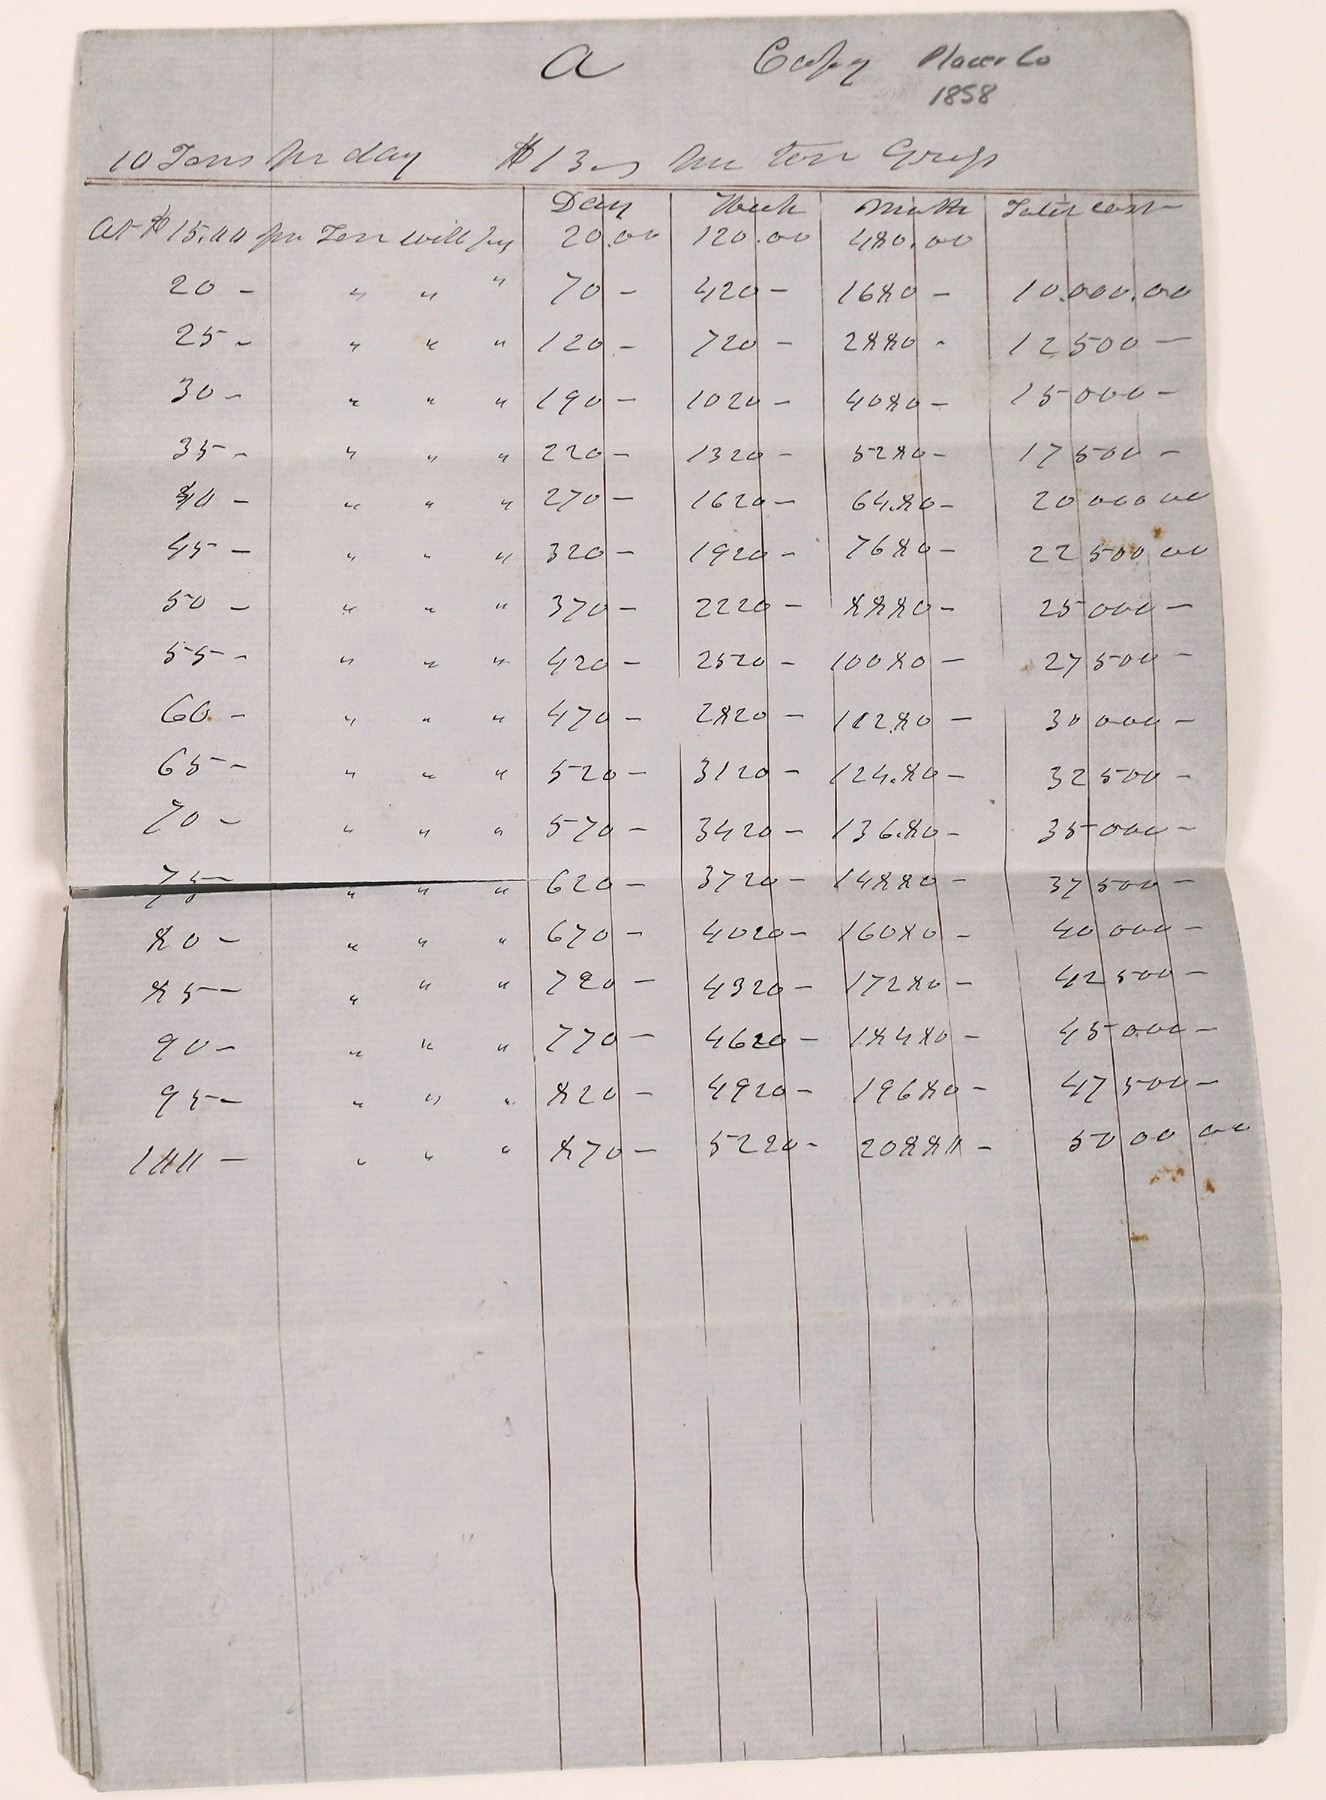 A Copy Placer Co
1858
10 Tons pr day $13 00 per ton Gross
Day Week Month Total cost
At $15.00 pr Ton will pay 20.00 120.00 480.00
20 - " " " 70 - 420 - 1680 - 10.000.00
25 - " " " 120 - 720 - 2880 - 12500 -
30 - " " " 190 - 1020 - 4080 - 15000 -
35 - " " " 220 - 1320 - 5280 - 17500 -
40 - " " " 270 - 1620 - 6480 - 20000 00
45 - " " " 320 - 1920 - 7680 - 22500 00
50 - " " " 370 - 2220 - 8880 - 25000 -
55 - " " " 420 - 2520 - 10080 - 27500 -
60 - " " " 470 - 2820 - 11280 - 30000 -
65 - " " " 520 - 3120 - 12480 - 32500 -
70 - " " " 570 - 3420 - 13680 - 35000 -
75 - " " " 620 - 3720 - 14880 - 37500 -
80 - " " " 670 - 4020 - 16080 - 40000 -
85 - " " " 720 - 4320 - 17280 - 42500 -
90 - " " " 770 - 4620 - 18480 - 45000 -
95 - " " " 820 - 4920 - 19680 - 47500 -
100 - " " " 870 - 5220 - 20880 - 5000 00